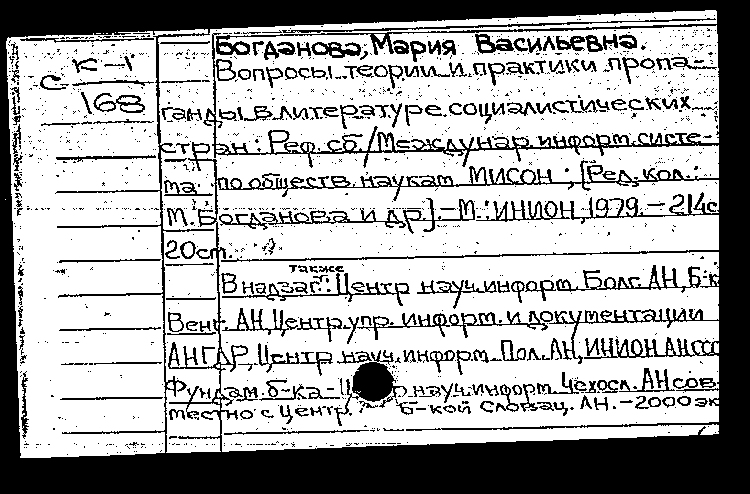 Богданова, Мария Васильевна.
С К-1
168
Вопросы теории и практики пропа-
ганды в литературе социалистических
стран: Реф. сб./Междунар. информ. систе-
ма по обществ. наукам МИСОН; [Ред. кол.:
М. Богданова и др.]. – М.: ИНИОН, 1979. – 214 с.
20 см.
также
В надзаг.: Центр науч. информ. Болг. АН, Б-к
Венг. АН, Центр упр. информ. и документации
АН ГДР, Центр науч. информ. Пол. АН, ИНИОН АН ССС
Фундам. б-ка – науч. информ. Чехосл. АН сов-
местно с Центр. б-кой Словац. АН. – 2000 эк